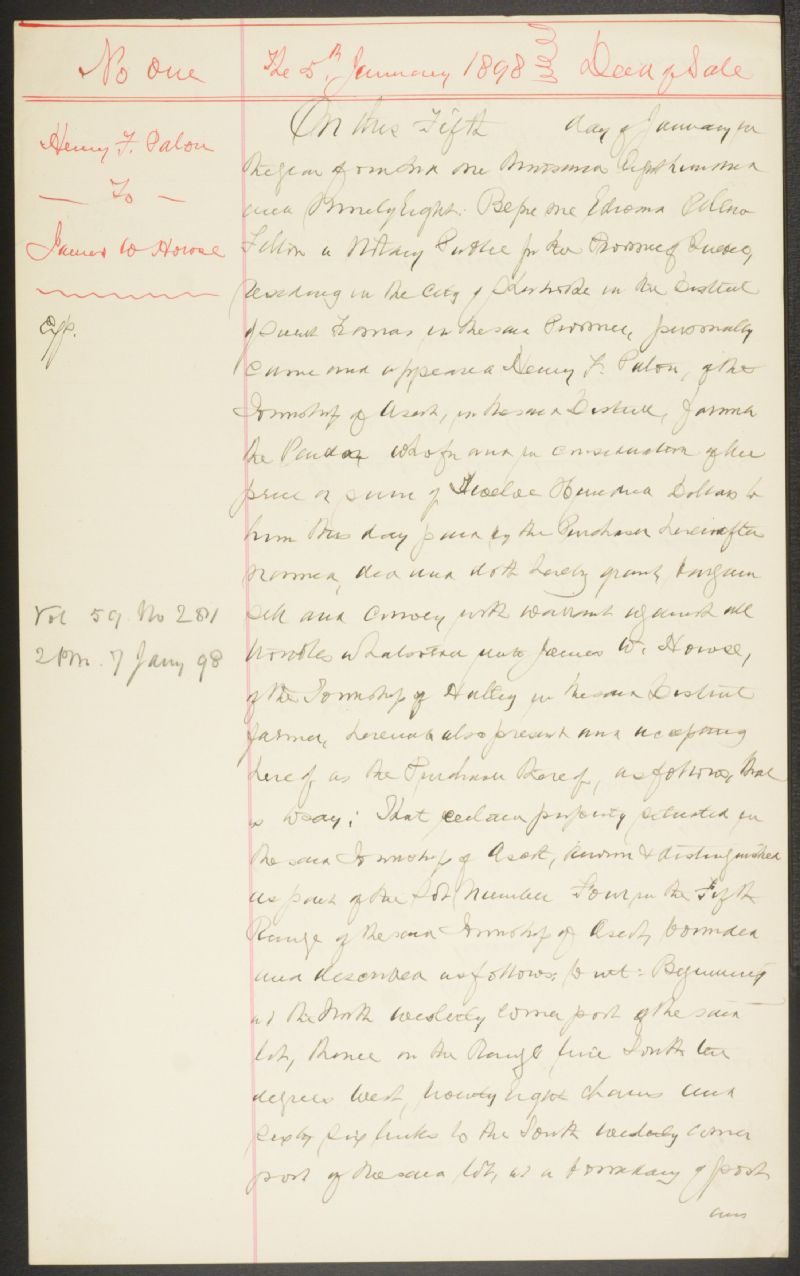 No One
The 5th January 1898
Deed of Sale
Henry F. Palon
To
James W Howse
Cys.
Vol 59 No 281
2 PM. 7 Jany 98
On this Fifth day of January in
the year of our Lord one thousand Eight hundred
and Ninety Eight. Before me Edmond
a Notary Public for the Province of Quebec,
residing in the City of Sherbrooke in the District
of Saint Francis in the said Province, personally
came and appeared Henry F. Palon, of the
Township of Ascot, in the said District, farmer
the Vendor who for and in consideration of the
price or sum of Twelve Hundred Dollars to
him this day paid by the Purchaser hereinafter
named, did and doth hereby grant, bargain
sell and convey with warranty against all
troubles whatsoever unto James W. Howse,
of the Township of Hatley in the said District
farmer, hereunto also present and accepting
hereof as the Purchaser thereof, as follows, that
is to say: That certain property situated in
the said Township of Ascot, known & distinguished
as part of the Lot Number Four, in the Fifth
Range of the said Township of Ascot, bounded
and described as follows, to wit: Beginning
at the North westerly corner post of the said
lot, thence on the Range line South ten
degrees West, twenty eight chains and
sixty six links to the South westerly corner
post of the said lot, at a boundary of post